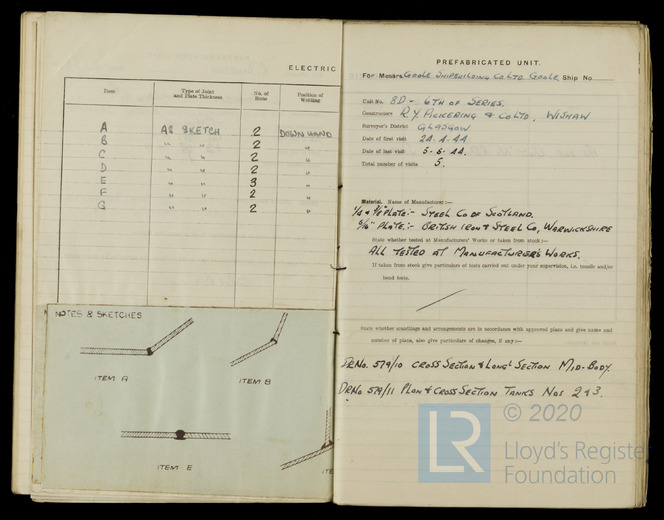 ELECTRIC
Item Type of Joint and Plate Thickness No. of Runs Position of Welding
A AS SKETCH 2 DOWNHAND
B " " 2 "
C " " 2 "
D " " 2 "
E " " 3 "
F " " 2 "
G " " 2 "
NOTES & SKETCHES
ITEM A
ITEM B
ITEM E
PREFABRICATED UNIT.
For Messrs. GOOLE SHIPBUILDING CO LTD GOOLE Ship No
Unit No. 8D - 6TH OF SERIES.
Constructors R.Y. PICKERING & CO LTD, WISHAW
Surveyor's District GLASGOW
Date of first visit 24.4.44
Date of last visit 5.6.44.
Total number of visits 5.
Material. Name of Manufacturer:—
PLATE:- STEEL CO OF SCOTLAND.
5/16" PLATE:- BRITISH IRON & STEEL CO, WARWICKSHIRE
State whether tested at Manufacturers' Works or taken from stock:—
ALL TESTED AT MANUFACTURER'S WORKS.
If taken from stock give particulars of tests carried out under your supervision, i.e. tensile and/or
bend tests.
State whether scantlings and arrangements are in accordance with approved plans and give name and
number of plans, also give particulars of changes, if any:—
DR No. 579/10 CROSS SECTION & LONGL SECTION MID-BODY.
DR No 579/11 PLAN & CROSS SECTION TANKS NOS 2 & 3.
© 2020
LR
Lloyd's Register
Foundation